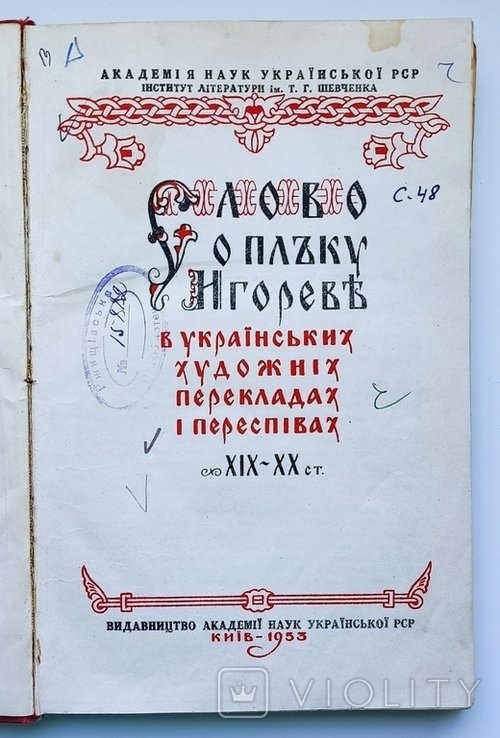 АКАДЕМІЯ НАУК УКРАЇНСЬКОЇ РСР
ІНСТИТУТ ЛІТЕРАТУРИ ім. Т. Г. ШЕВЧЕНКА
СЛОВО
С-48
О ПЛЪКУ
ИГОРЕВѢ
в українських
художніх
перекладах
і переспівах
XIX~XX ст.
ВИДАВНИЦТВО АКАДЕМІЇ НАУК УКРАЇНСЬКОЇ РСР
КИЇВ-1953
VIOLITY